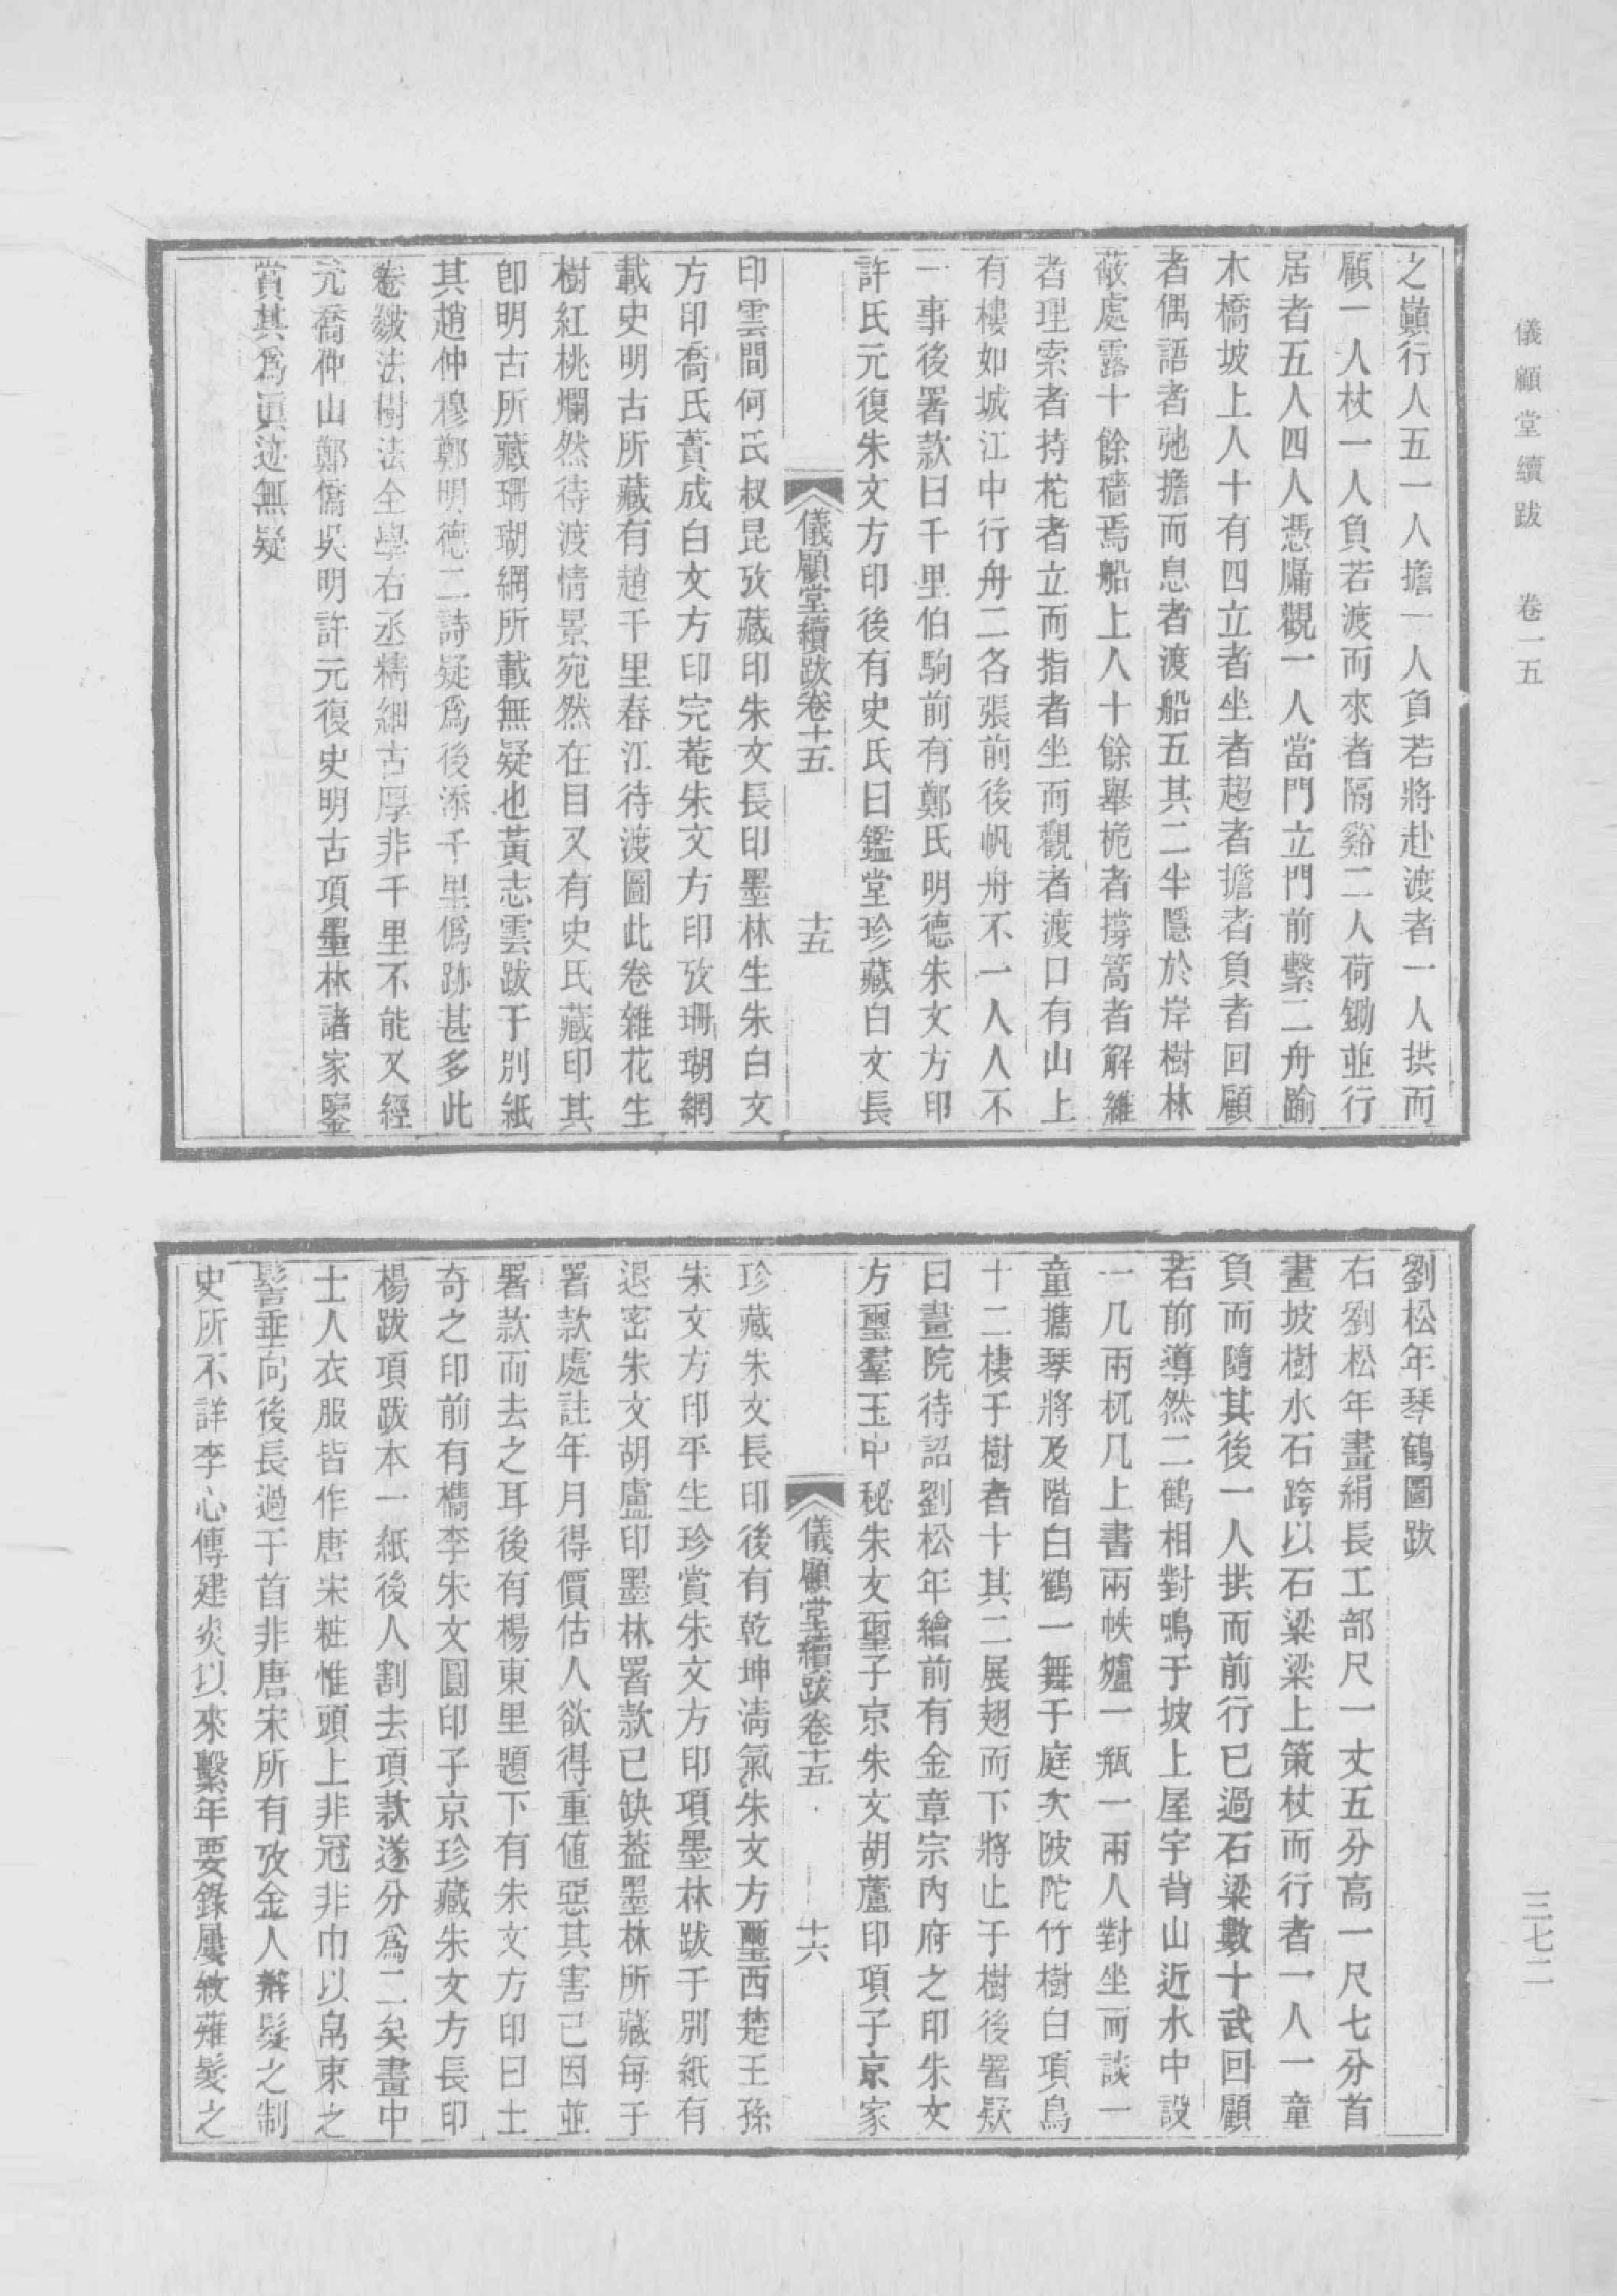 儀顧堂續跋　卷一五
之巔行人五一人擔一人負若將赴渡者一人拱而
顧一人杖一人負若渡而來者隔谿二人荷鋤並行
居者五人四人憑牖觀一人當門立門前繫二舟踰
木橋坡上人十有四立者坐者趨者擔者負者回顧
者偶語者弛擔而息者渡船五其二半隱於岸樹林
蔽處露十餘檣焉船上人十餘舉桅者撐篙者解維
者理索者持柁者立而指者坐而觀者渡口有山上
有樓如城江中行舟二各張前後帆舟不一人人不
一事後署款曰千里伯駒前有鄭氏明德朱文方印
許氏元復朱文方印後有史氏曰鑑堂珍藏白文長
儀顧堂續跋卷十五　十五
印雲間何氏叔昆攷藏印朱文長印墨林生朱白文
方印喬氏蕢成白文方印完菴朱文方印攷珊瑚網
載史明古所藏有趙千里春江待渡圖此卷雜花生
樹紅桃爛然待渡情景宛然在目又有史氏藏印其
卽明古所藏珊瑚網所載無疑也黃志雲跋于別紙
其趙仲穆鄭明德二詩疑爲後添千里僞跡甚多此
卷皴法樹法全學右丞精細古厚非千里不能又經
元喬仲山鄭僑吳明許元復史明古項墨林諸家鑒
賞其爲眞迹無疑
劉松年琴鶴圖跋
右劉松年畫絹長工部尺一丈五分高一尺七分首
畫坡樹水石跨以石梁梁上策杖而行者一人一童
負而隨其後一人拱而前行已過石梁數十武回顧
若前導然二鶴相對鳴于坡上屋宇背山近水中設
一几兩杌几上書兩帙爐一瓶一兩人對坐而談一
童攜琴將及階白鶴一舞于庭次陂陀竹樹白項鳥
十二棲于樹者十其二展翅而下將止于樹後署款
曰畫院待詔劉松年繪前有金章宗內府之印朱文
方璽羣玉中秘朱文璽子京朱文胡蘆印項子京家
儀顧堂續跋卷十五　十六
珍藏朱文長印後有乾坤淸氣朱文方璽西楚王孫
朱文方印平生珍賞朱文方印項墨林跋于別紙有
退密朱文胡盧印墨林署款已缺葢墨林所藏每于
署款處註年月得價估人欲得重値惡其害己因並
署款而去之耳後有楊東里題下有朱文方印曰士
奇之印前有檇李朱文圓印子京珍藏朱文方長印
楊跋項跋本一紙後人割去項款遂分爲二矣畫中
士人衣服皆作唐宋粧惟頭上非冠非巾以帛束之
髻垂向後長過于首非唐宋所有攷金人辮髮之制
史所不詳李心傳建炎以來繫年要錄屢敘薙髮之
三七二